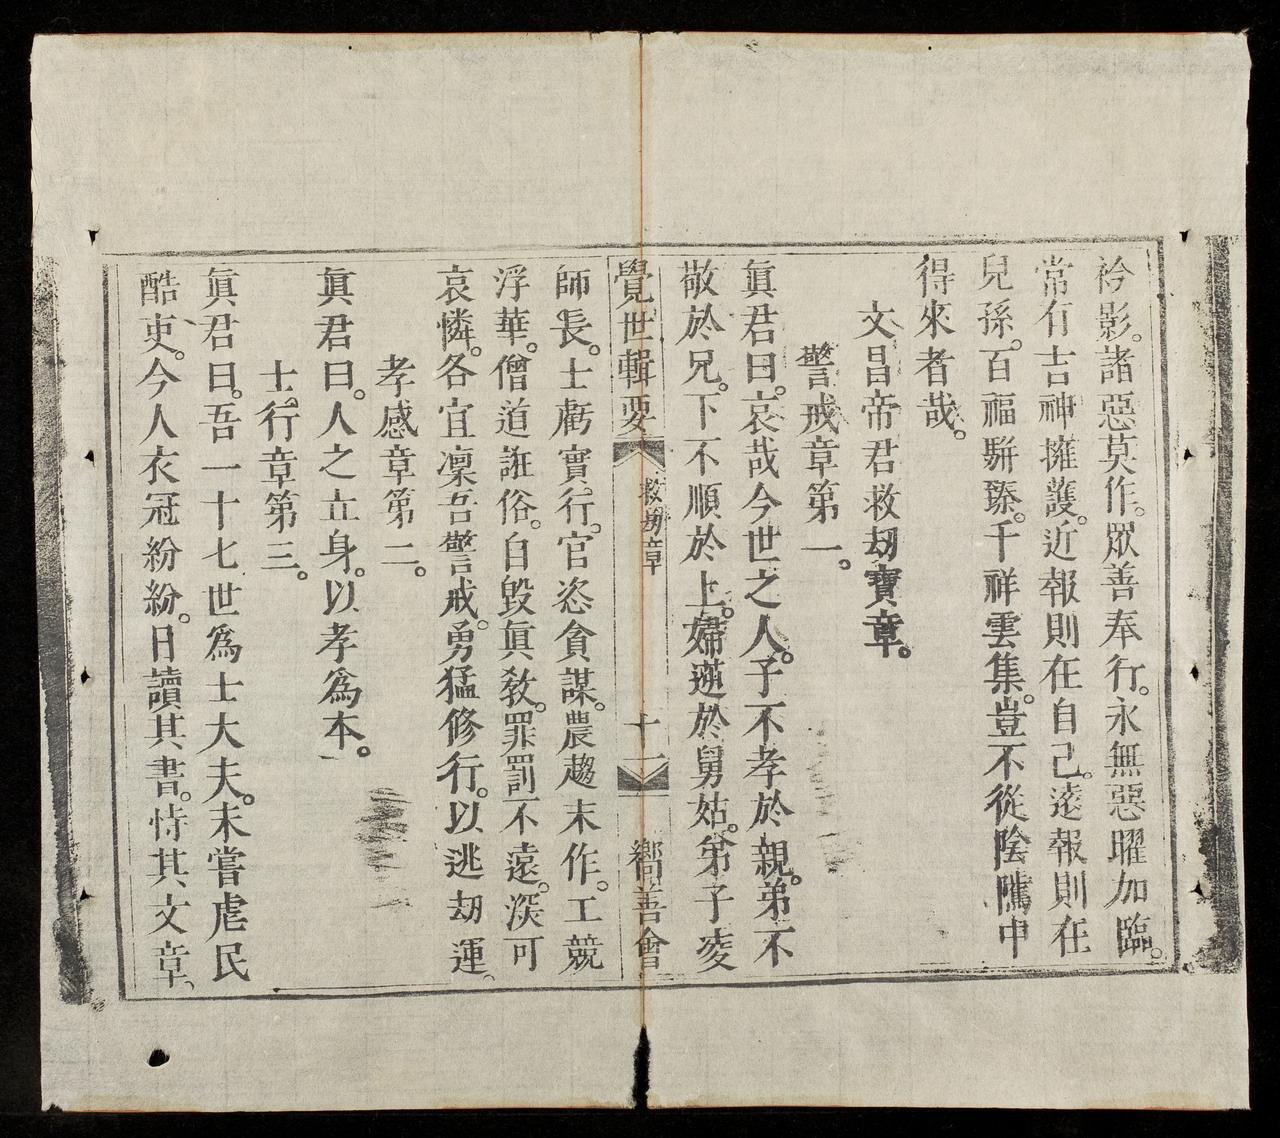 衾影。諸惡莫作。眾善奉行。永無惡曜加臨。
常有吉神擁護。近報則在自己。遠報則在
兒孫。百福駢臻。千祥雲集。豈不從陰隲中
得來者哉。
文昌帝君救刼寶章。
警戒章第一。
眞君曰。哀哉今世之人。子不孝於親。弟不
敬於兄。下不順於上。婦逆於舅姑。弟子
師長。士虧實行。官恣貪謀。農趨末作。工競
浮華。僧道誑俗。自毀眞敎。罪罰不遠。深可
哀憐。各宜凜吾警戒。勇猛修行。以逃刼運。
孝感章第二。
眞君曰。人之立身。以孝爲本。
士行章第三。
眞君曰。吾一十七世爲士大夫。未嘗虐民
酷吏。今人衣冠紛紛。日讀其書。恃其文章、
覺世輯要
救刼章
十一
嚮善會